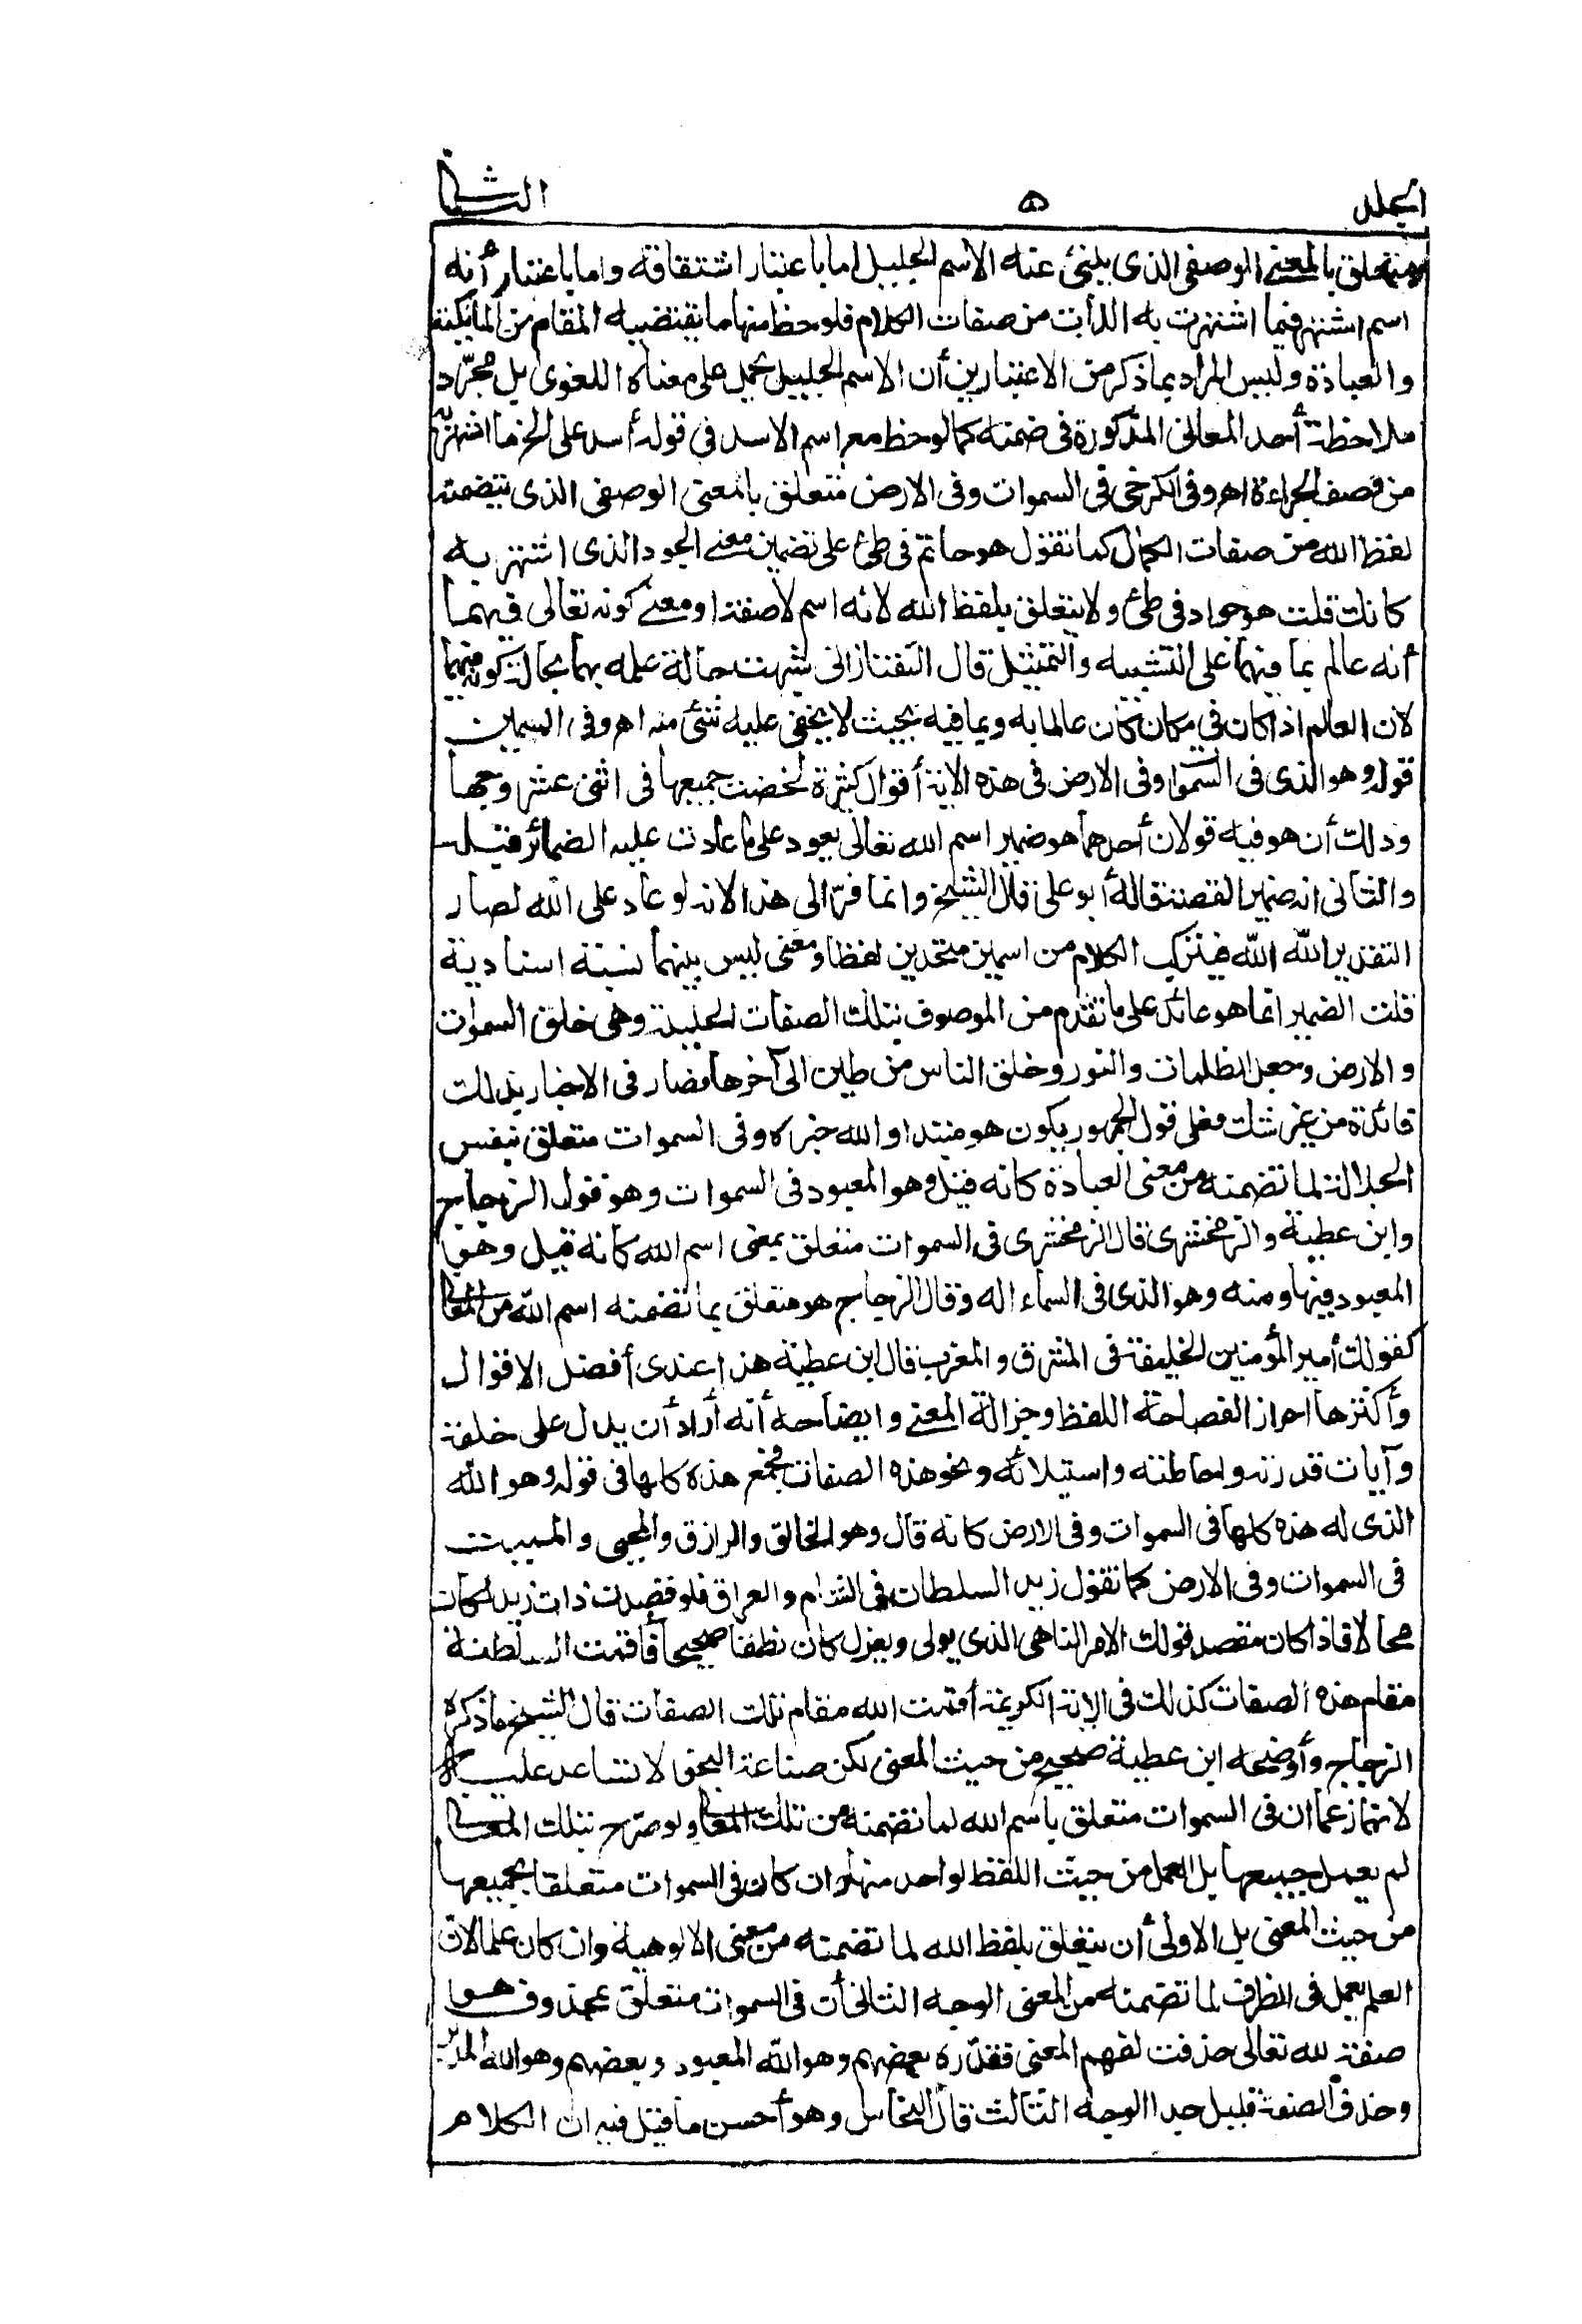 المجلد ٥ الثاني
متعلق بالمعنى الوصفى الذى ينبئ عنه الاسم الجليل اما باعتبار اشتقاقه واما باعتبار أنه
اسم اشتهر فيما اشتهرت به الذات من صفات الكلام فلوحظ منها ما يقتضيه المقام من المالكية
والعبادة وليس المراد بما ذكر من الاعتبارين أن الاسم الجليل يحمل على معناه اللغوى بل مجرّد
ملاحظة أحد المعانى المذكورة فى ضمنه كما لوحظ مع اسم الاسد فى قوله أسد على الخ ما اشتهر به
من وصف الجراءة اهـ وفى الكرخى فى السموات وفى الارض متعلق بالمعنى الوصفى الذى يتضمنه
لفظ الله من صفات الكمال كما تقول هو حاتم فى طئ على تضمين معنى الجود الذى اشتهر به
كانك قلت هو جواد فى طئ ولا يتعلق بلفظ الله لانه اسم لا صفة او معنى كونه تعالى فيهما
أنه عالم بما فيهما على التشبيه والتمثيل قال التفتازانى شبهت حالة علمه بهما بحالة كونه فيهما
لان العالم اذا كان فى مكان كان عالما به وبما فيه بحيث لا يخفى عليه شئ منه اهـ وفى السمين
قوله وهو الذى فى السموا وفى الارض فى هذه الاية أقوال كثيرة لخصت جميعها فى اثنى عشر وجها
وذلك أن هو فيه قولان أحدهما هو ضمير اسم الله تعالى يعود على ما عادت عليه الضمائر قبله
والثانى انه ضمير القصة قاله أبو على قال الشيخ وانما فرّ الى هذا لانه لو عاد على الله لصار
التقدير الله الله فيتركب الكلام من اسمين متحدين لفظا ومعنى ليس بينهما نسبة اسنادية
قلت الضمير انما هو عائد على ما تقدم من الموصوف بتلك الصفات الجليلة وهى خلق السموات
والارض وجعل الظلمات والنور وخلق الناس من طين الى آخرها فصار فى الاخبار بذلك
فائدة من غير شك فعلى قول الجمهور يكون هو مبتدا والله خبره وفى السموات متعلق بنفس
الجلالة لما تضمنه من معنى العبادة كانه قيل وهو المعبود فى السموات وهو قول الزجاج
وابن عطية والزمخشرى قال الزمخشرى فى السموات متعلق بمعنى اسم الله كانه قيل وهو
المعبود فيها ومنه وهو الذى فى السماء اله وقال الزجاج هو متعلق بما تضمنه اسم الله من المعانى
كقولك أمير المؤمنين الخليفة فى المشرق والمغرب قال ابن عطية هذا عندى أفضل الاقوال
وأكثرها احراز الفصاحة اللفظ وجزالة المعنى وايضاحه أنه أراد أن يدل على خلقه
وآيات قدرته واحاطته واستيلائه ونحو هذه الصفات فجمع هذه كلها فى قوله وهو الله
الذى له هذه كلها فى السموات وفى الارض كانه قال وهو الخالق والرازق والمحيى والمميت
فى السموات وفى الارض كما تقول زيد السلطان فى الشام والعراق فلو قصدت ذات زيد لكان
محالا فاذا كان مقصد قولك الامر الناهى الذى يولى ويعزل كان نطقا صحيحا فأقمت السلطنة
مقام هذه الصفات كذلك فى الاية الكريمة أقمت الله مقام تلك الصفات قال الشيخ ما ذكره
الزجاج وأوضحه ابن عطية صحيح من حيث المعنى لكن صناعة النحو لا تساعد عليه
لانهما زعما ان فى السموات متعلق باسم الله لما تضمنه من تلك المعانى ولو صرّح بتلك المعانى
لم يعمل جميعها بل العمل من حيث اللفظ لواحد منها وان كان فى السموات متعلقا بجميعها
من حيث المعنى بل الاولى أن يتعلق بلفظ الله لما تضمنه من معنى الالوهية وان كان علما لان
العلم يعمل فى الظرف لما تضمنه من المعنى الوجه الثانى أن فى السموات متعلق بمحذوف هو
صفة لله تعالى حذفت لفهم المعنى فقدّره بعضهم وهو الله المعبود وبعضهم وهو الله المدبر
وحذف الصفة قليل جدا الوجه الثالث قال النحاس وهو أحسن ما قيل فيه ان الكلام